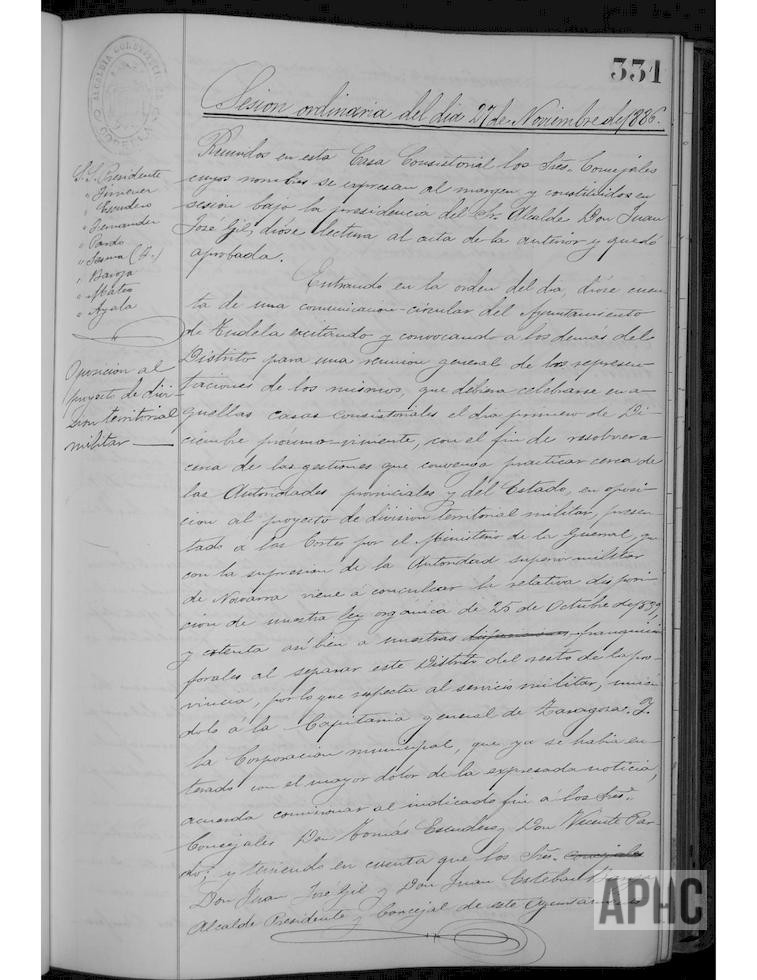 331
ALCALDIA CORELLA
Sesion ordinaria del dia 27 de Noviembre de 1886.
S. S. Presidente
" Jimenez
" Escudero
" Fernandez
" Pardo
" Sesma (Z.)
" Baroja
" Mateo
" Ayala
Oposicion al
proyecto de divi-
sion territorial
militar
Reunidos en esta Casa Consistorial los Sres. Concejales
cuyos nombres se expresan al margen y constituidos en
sesion bajo la presidencia del Sr. Alcalde Don Juan
José Gil, dióse lectura al acta de la anterior y quedó
aprobada.
Entrando en la orden del dia, dióse cuen-
ta de una comunicacion-circular del Ayuntamiento
de Tudela excitando y convocando a los demás del
Distrito para una reunion general de los represen-
taciones de los mismos, que debiera celebrarse en a-
quellas casas consistoriales el dia primero de Di-
ciembre próximo viviente, con el fin de resolver a-
cerca de las gestiones que convenga practicar cerca de
las Autoridades provinciales y del Estado, en oposi-
cion al proyecto de division territorial militar, presen-
tado á las Cortes por el Ministerio de la Guerra, que
con la supresion de la Autoridad superior militar
de Navarra viene á conculcar la relativa disposi-
cion de nuestra ley organica de 25 de Octubre de 1839,
y atenta asi bien a nuestras franquicias
forales al separar este Distrito del resto de la pro-
vincia, por lo que respecta al servicio militar, unien
dolo á la Capitania general de Zaragoza. Y
la Corporacion municipal, que ya se habia en-
terado con el mayor dolor de la expresada noticia,
acuerda comisionar al indicado fin á los Sres.
Concejales Don Tomás Escudero y Don Vicente Par-
do; y teniendo en cuenta que los Sres. concejales
Don Juan José Gil y Don Juan Esteban
Alcalde Presidente y Concejal de este Ayuntamiento
APHC